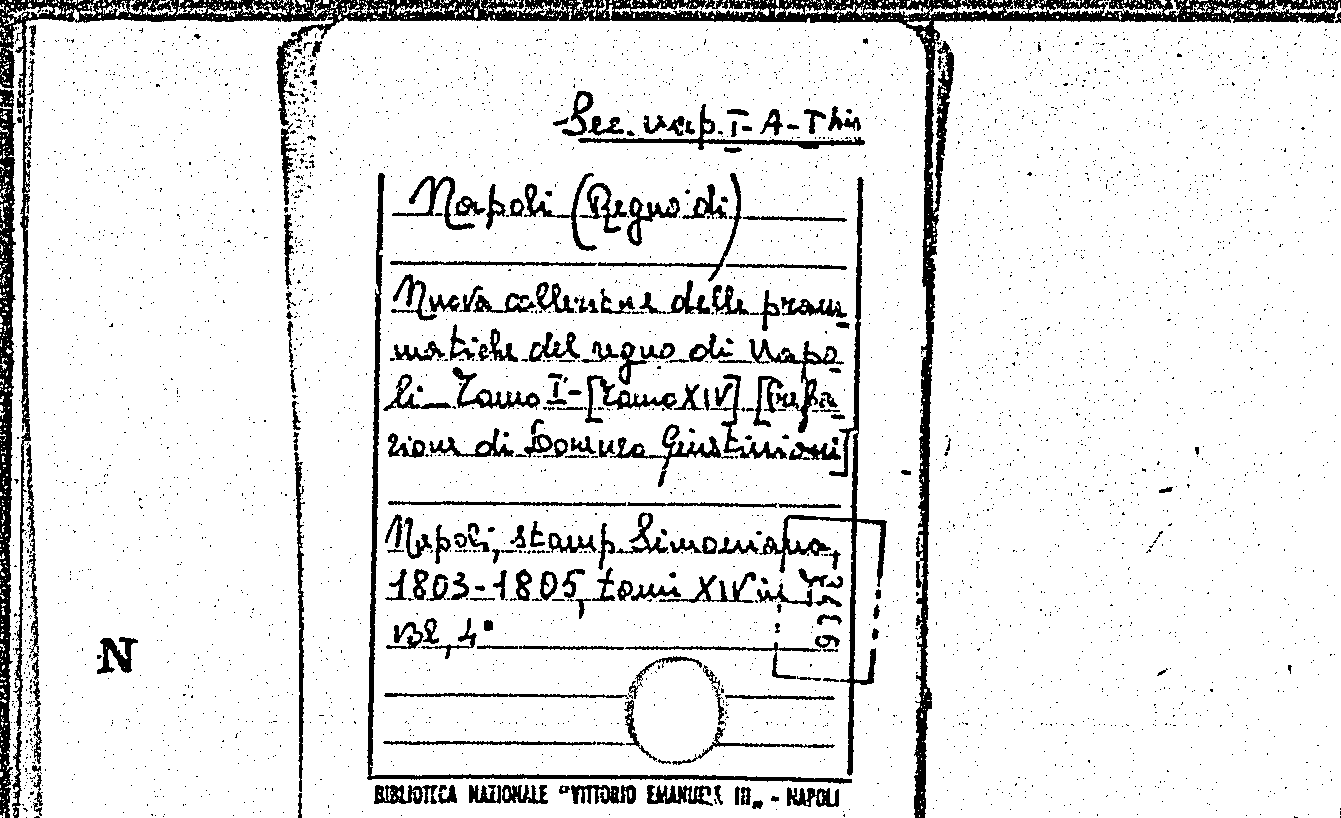 Sez. nap. I-A-
Napoli (Regno di)
Nuova collezione delle pram
matiche del regno di Napo
li_ Tomo I-[Tomo XIV] [Prefa
zione di Lorenzo Giustiniani]
Napoli, stamp. Simoniana,
1803-1805, tomi XIV in
4°
N
BIBLIOTECA NAZIONALE "VITTORIO EMANUELE III„ - NAPOLI